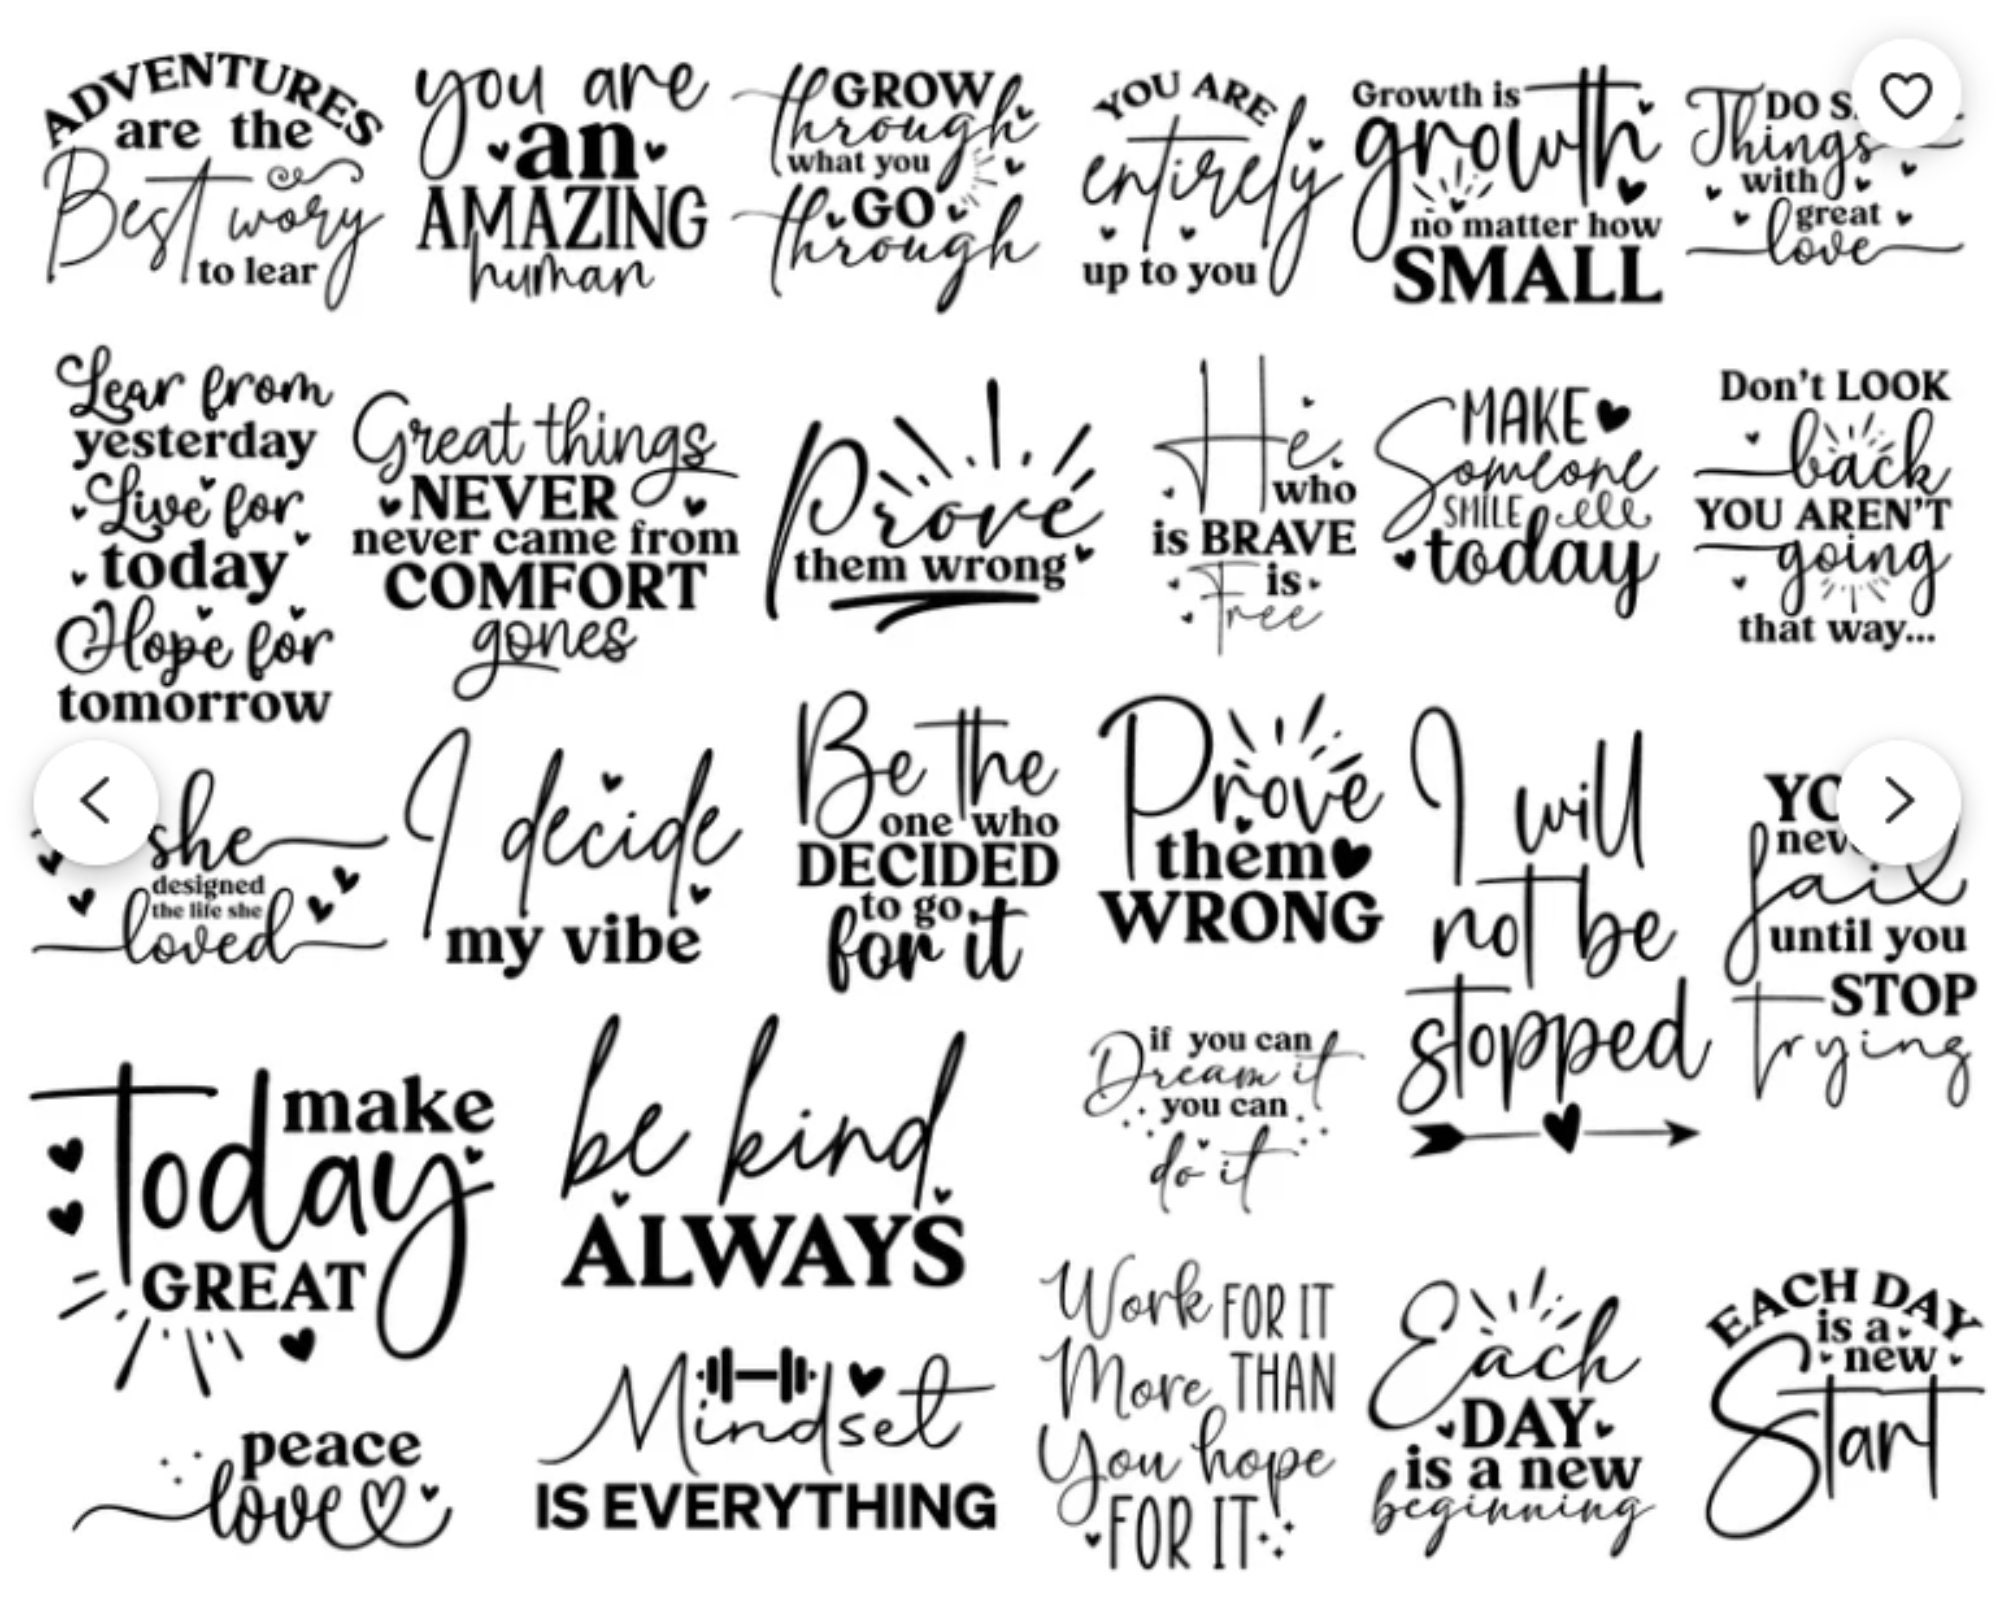 ADVENTURES
are the
Best wory
to lear
you are
an
AMAZING
human
GROW
through
what you
GO
through
YOU ARE
entirely
up to you
Growth is
growth
no matter how
SMALL
DO
Things
with
great
love
Lear from
yesterday
Live for
today
Hope for
tomorrow
Great things
NEVER
never came from
COMFORT
gones
Prove
them wrong
He
who
is BRAVE
is
Free
MAKE
Someone
SMILE
today
Don't LOOK
back
YOU AREN'T
going
that way...
she
designed
the life she
loved
I decide
my vibe
Be the
one who
DECIDED
to go
for it
Prove
them
WRONG
I will
not be
stopped
fail
until you
STOP
trying
make
Today
GREAT
be kind
ALWAYS
if you can
Dream it
you can
do it
peace
love
Mindset
IS EVERYTHING
Work FOR IT
More THAN
You hope
FOR IT
Each
DAY
is a new
beginning
EACH DAY
is a
new
Start